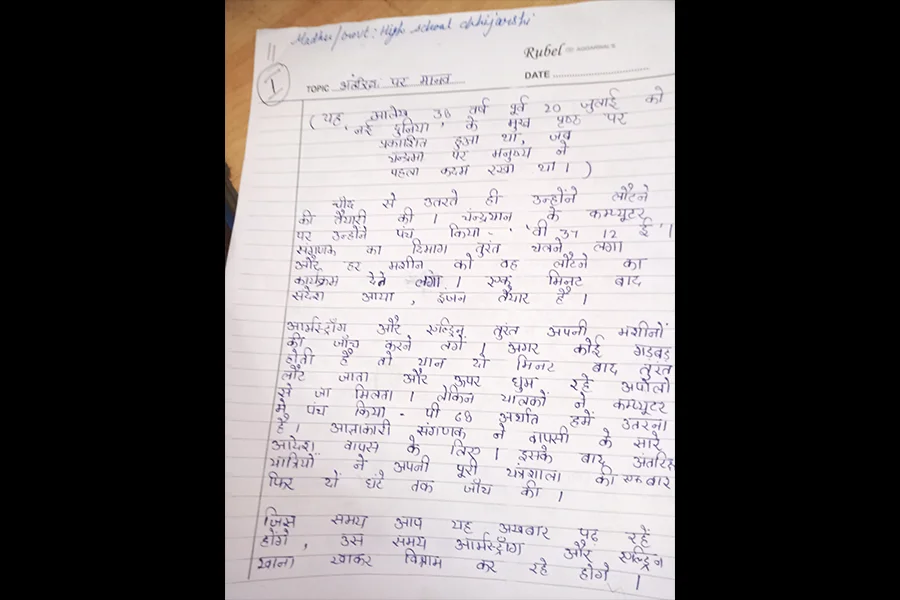 Madhu/Govt: High school
11
Rubel
I
TOPIC अंतरिक्ष पर मानव
DATE
(यह आलेख 30 वर्ष पूर्व 20 जुलाई को
'नई दुनिया' के मुख पृष्ठ पर
प्रकाशित हुआ था, जब
चन्द्रमा पर मनुष्य ने
पहला कदम रखा था । )
चाँद से उतरते ही उन्होंने लौटने
की तैयारी की । चंन्द्रयान के कम्प्यूटर
पर उन्होंने पंच किया - 'वी 37 12 ई' ।
संगणक का दिमाग तुरंत चलने लगा
और हर मशीन को वह लौटने का
कार्यक्रम देने लगा । एक मिनट बाद
संदेश आया, इंजन तैयार है ।
आर्मस्ट्राँग और एल्ड्रिन तुरंत अपनी मशीनों
की जाँच करने लगे । अगर कोई गड़बड़
होती है तो यान दो मिनट बाद तुरंत
लौट जाता और ऊपर घुम रहे अपोलो
से जा मिलता । लेकिन चालकों ने कम्प्यूटर
में पंच किया - पी 68 अर्थात हमें उतरना
है । आज्ञाकारी संगणक ने वापसी के सारे
आदेश वापस ले लिए । इसके बाद अंतरिक्ष
यात्रियों ने अपनी पूरी यंत्रशाला की एक बार
फिर दो घंटे तक जाँच की ।
जिस समय आप यह अखबार पढ़ रहें
होंगे, उस समय आर्मस्ट्राँग और एल्ड्रिन
खाना खाकर विश्राम कर रहे होंगे ।